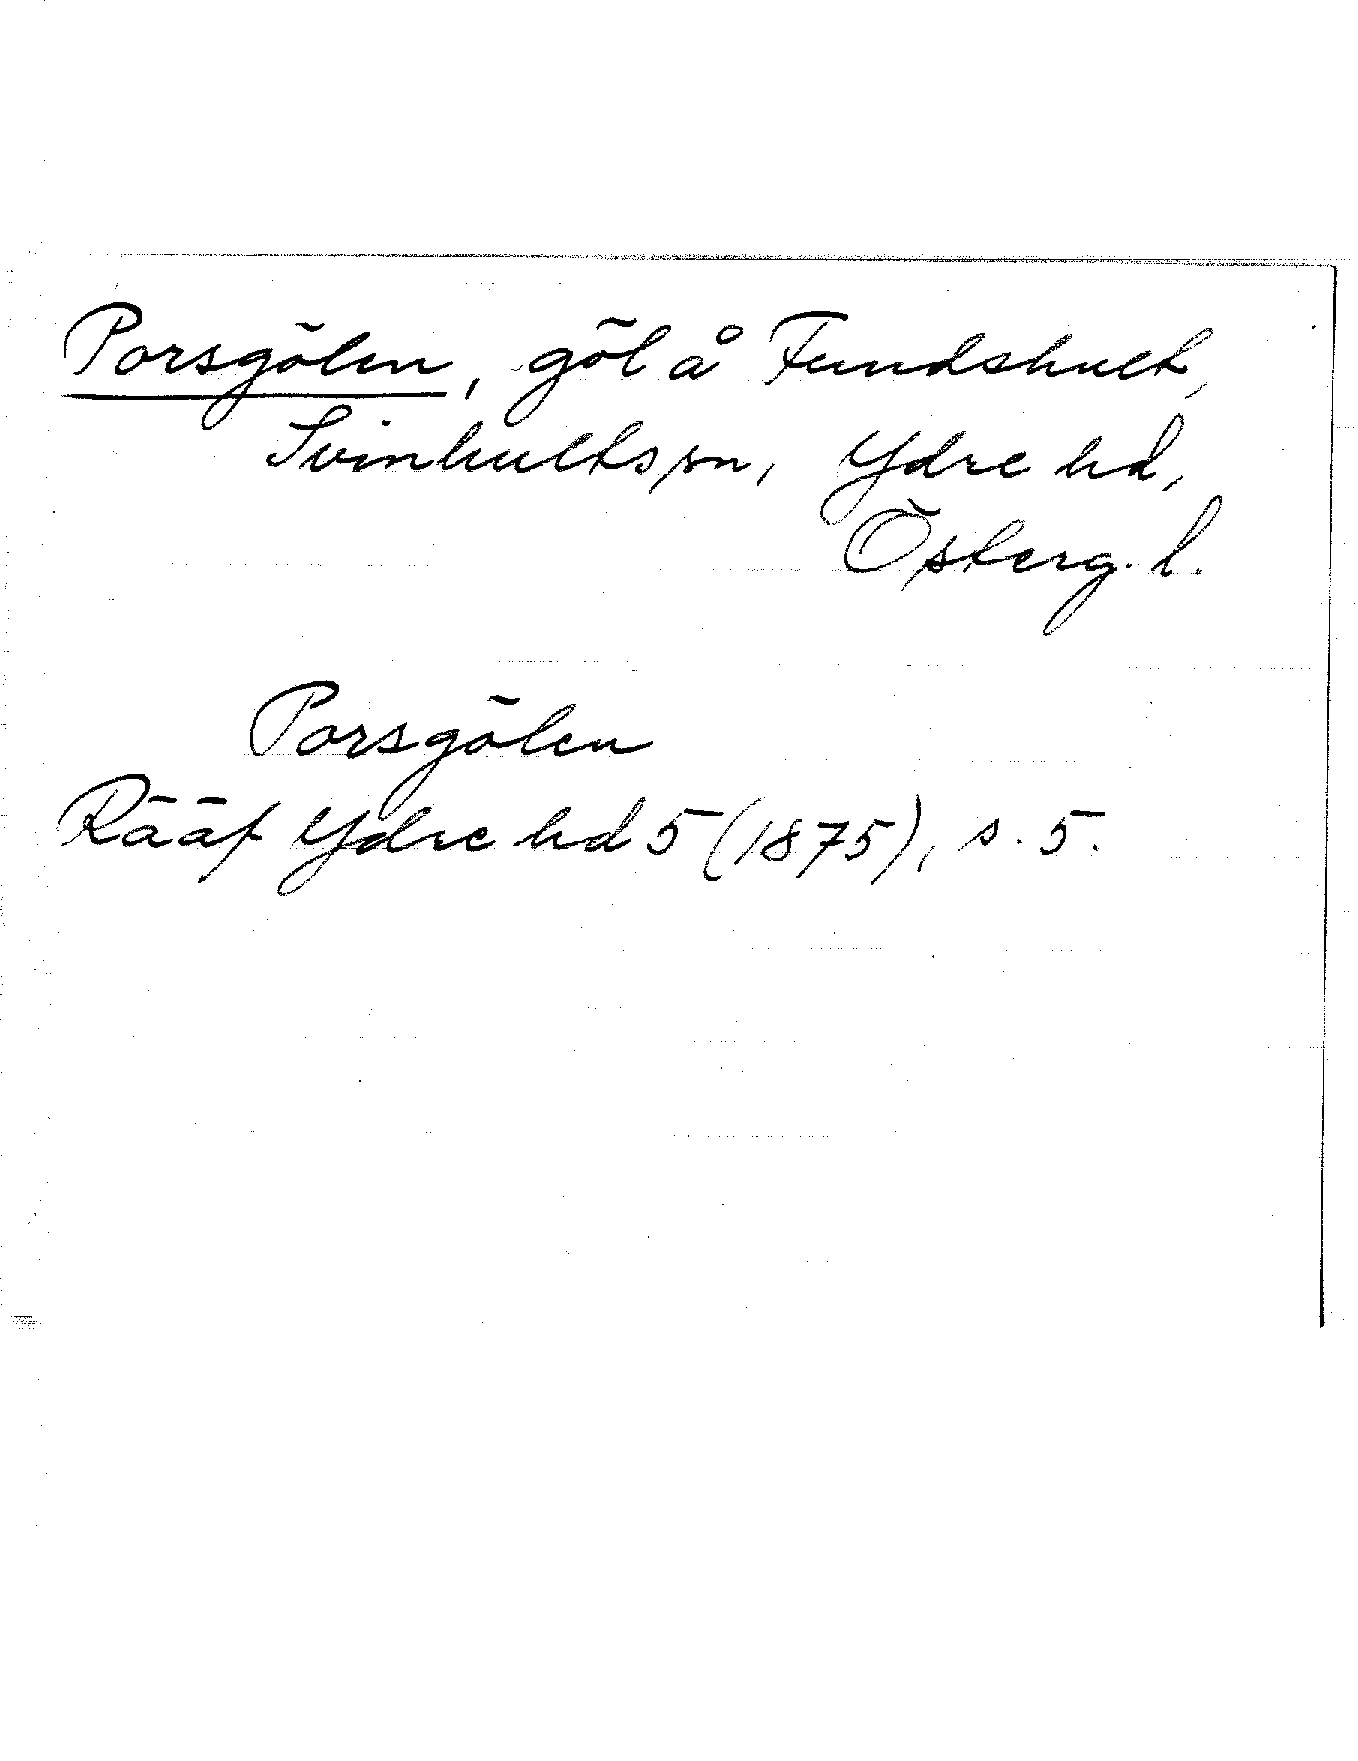 Porsgölen, göl å Fundshult,
Svinhults sn, Ydre hd,
Österg. l.
Porsgölen
Rääf Ydre hd 5 (1875), s. 5.